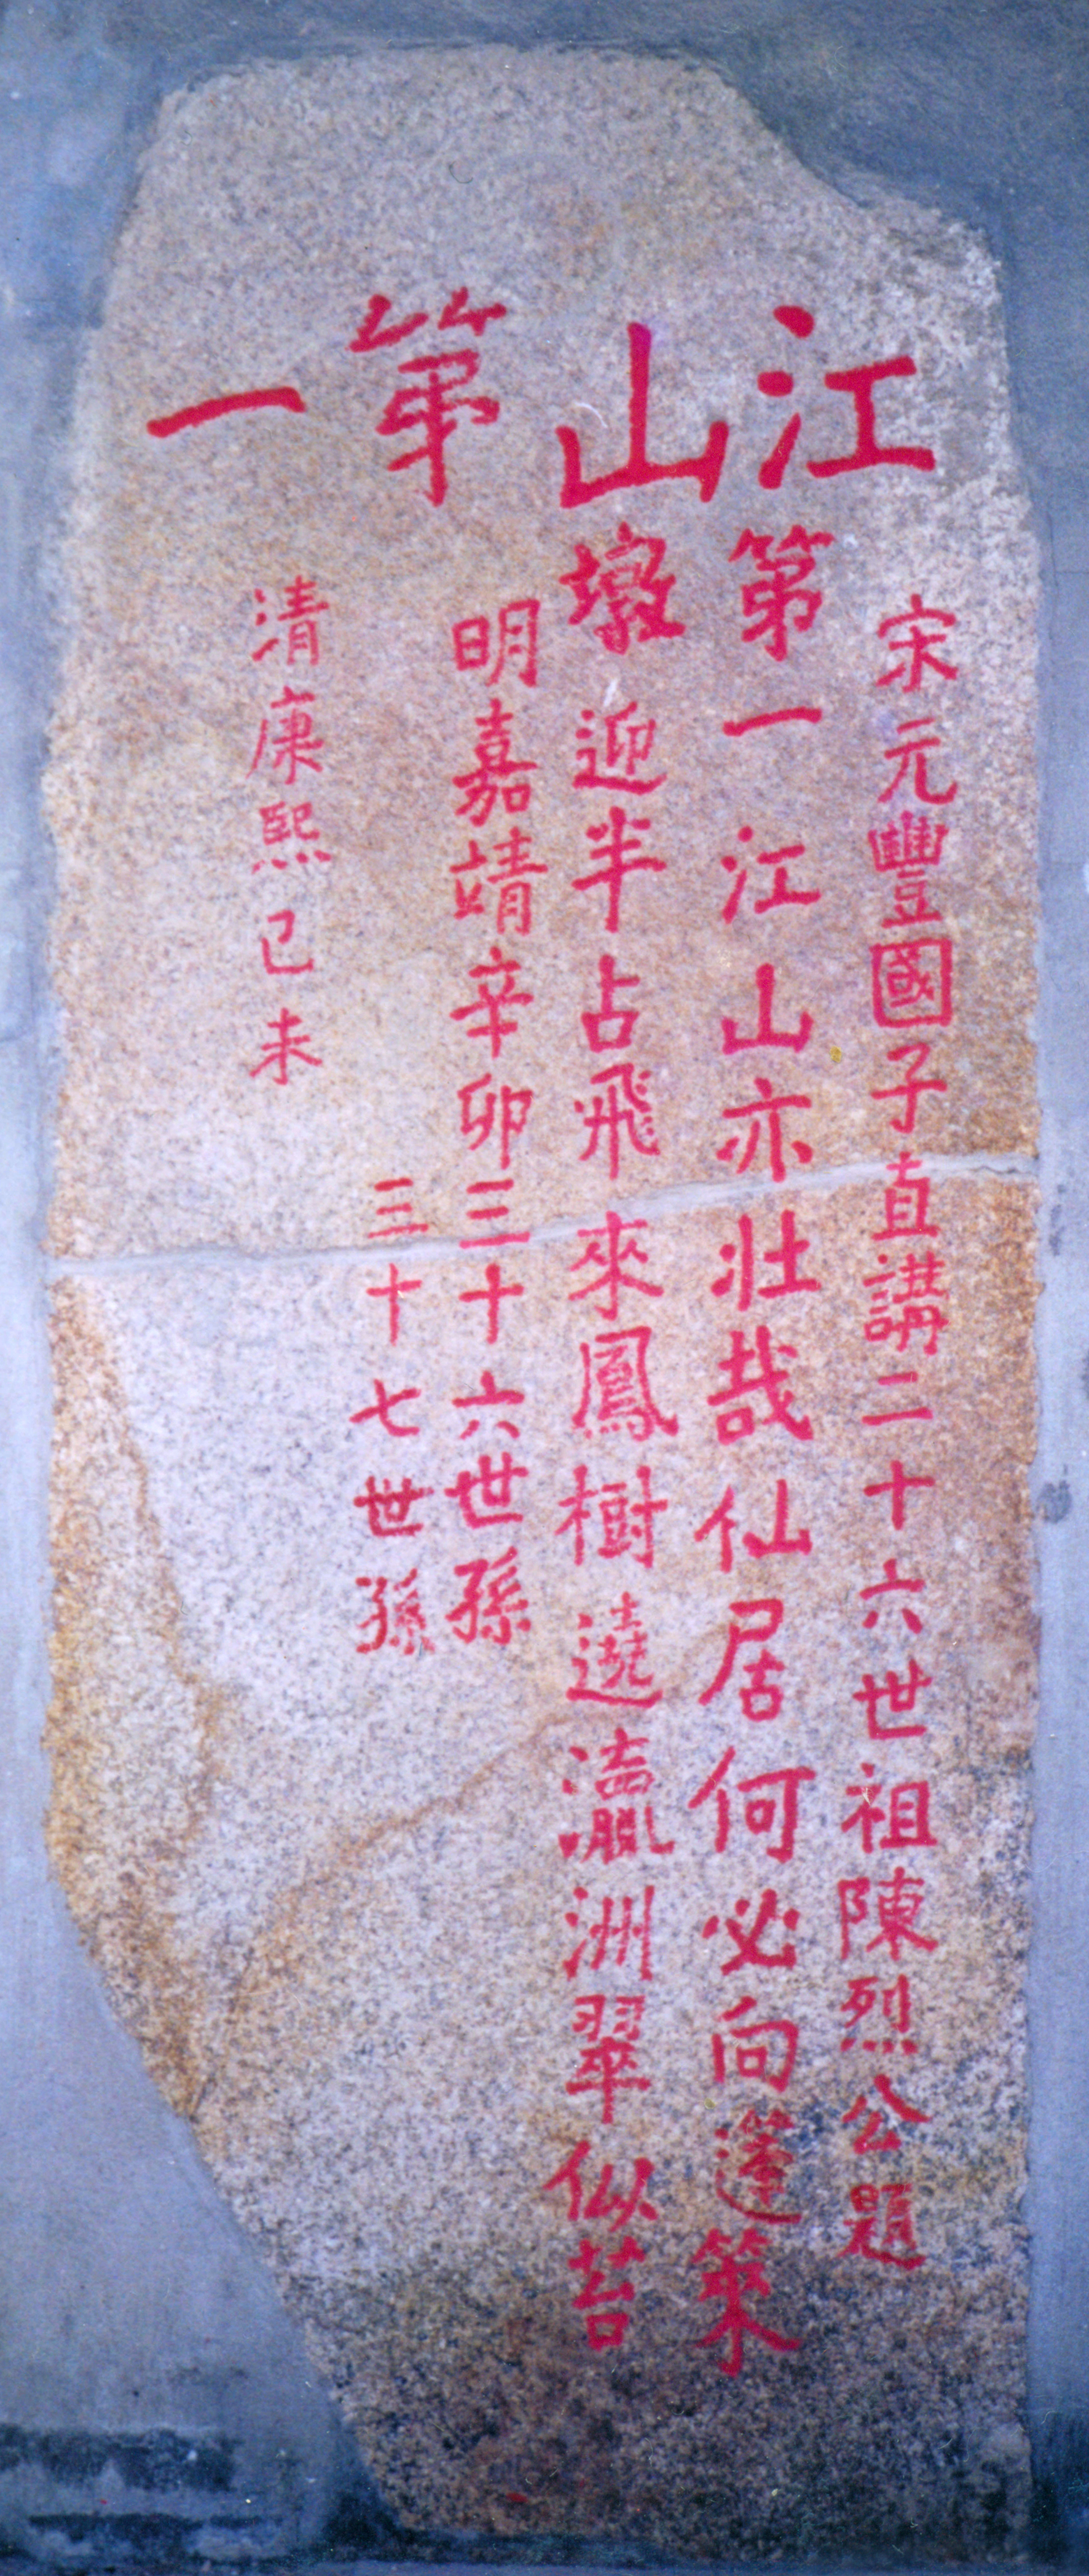 江山第一
宋元豐國子直講二十六世祖陳烈公題
第一江山亦壯哉仙居何必向篷箂
墩迎半占飛來鳳樹遶瀛洲翠似苔
明嘉靖辛卯三十六世孫
三十七世孫
清康熙己未